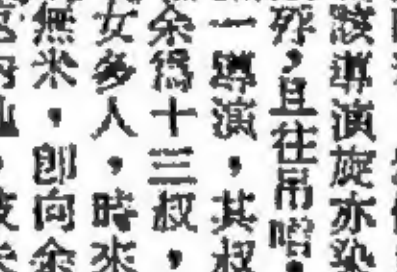 該導演旋亦染
歿，且往吊唁，
一導演，其叔
余爲十三叔，
女多人，時來
無米，即向余